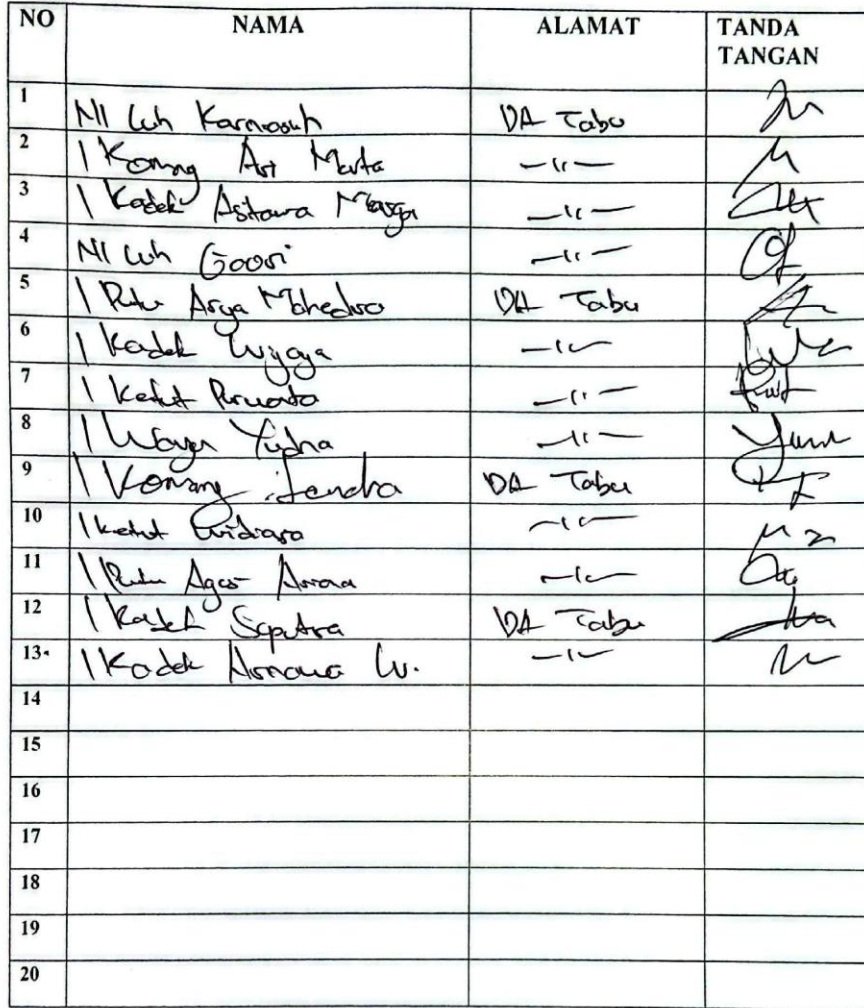 NO NAMA ALAMAT TANDA TANGAN
1 NI Luh Karniasih DA Tabu
2 I Komang Ari Marta —〃—
3 I Kadek Astawa Marga —〃—
4 NI Luh —〃—
5 I Putu Arya Mahedra DA Tabu
6 I Kadek Wijaya —〃—
7 I Ketut Purwata —〃—
8 I Wayan Yudha —〃—
9 I Komang Jendra DA Tabu
10 I Ketut Widiara —〃—
11 I Putu Agus —〃—
12 I Kadek Saputra DA Tabu
13. I Kadek W. —〃—
14
15
16
17
18
19
20